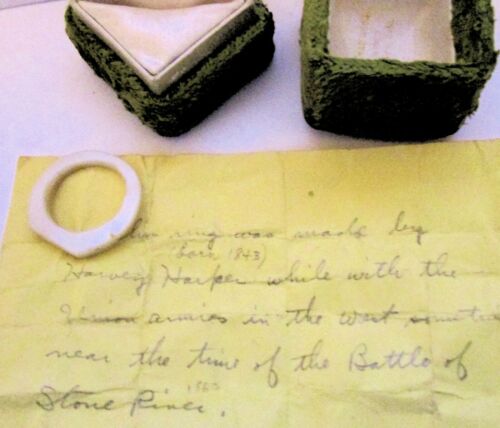 ring was made by
(born 1843)
Harvey Harper while with the
Union armies in the west
near the time of the Battle of
Stone River.